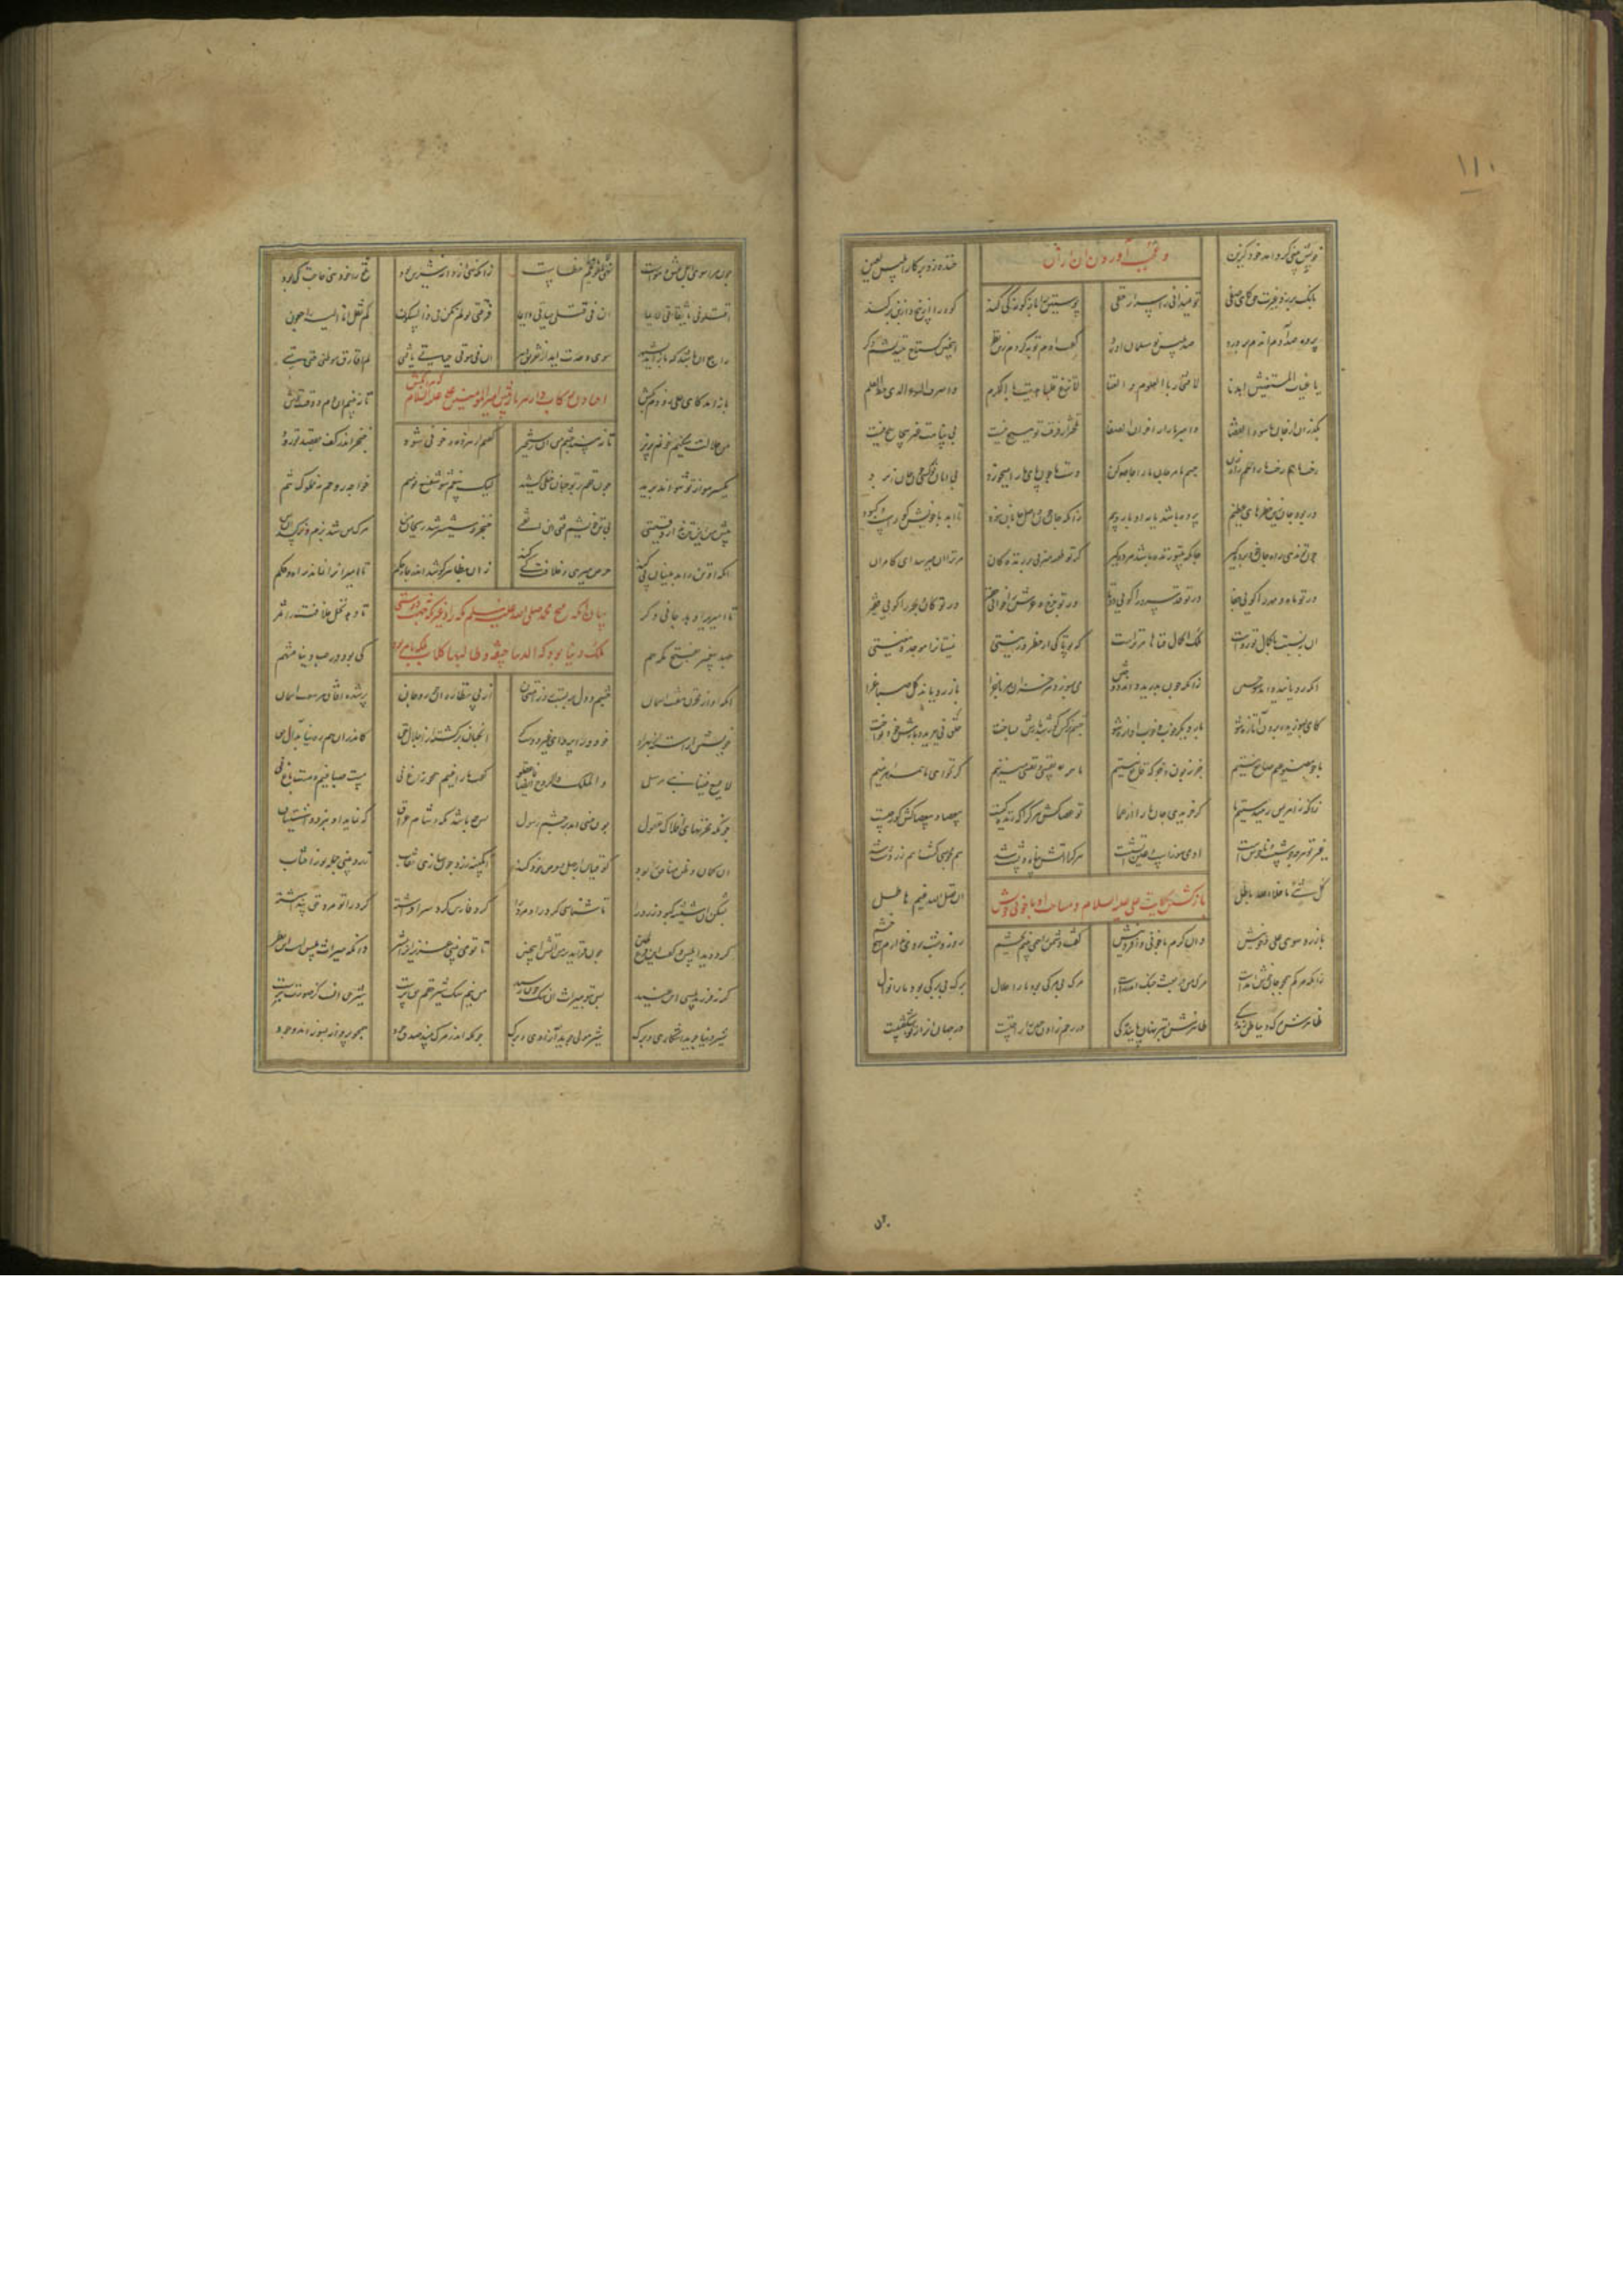 ۱۱۰
خویش بینی کرد و آمد خود گزین
و عجب آوردن آن
خنده زد بر کار ابلیس لعین
بانگ بر زد غیرت حق کای صفی
تو نمیدانی ز اسرار خفی
پوستین را بازگونه گر کند
کوه را از بیخ و از بن برکند
پرده صد آدم آن دم بر درد
صد بلیس نو مسلمان آورد
گفت آدم توبه کردم زین نظر
اینچنین گستاخ نندیشم دگر
یا غیاث المستغیثین اهدنا
لا افتخار بالعلوم و الغنا
لا تزغ قلبا هدیت بالکرم
واصرف السوء الذی خط القلم
بگذران از جان ما سوء القضا
وامبر ما را ز اخوان الصفا
تلختر از فرقت تو هیچ نیست
بی پناهت غیر پیچاپیچ نیست
رخت ما هم رخت ما را راه زن
جسم ما مر جان ما را جامه کن
دست ما چون پای ما را میخورد
بی امان تو کسی چون جان برد
ور برد جان زین خطرهای عظیم
برده باشد مایه ادبار و بیم
زانکه جان چون واصل جانان نبود
تا ابد با خویش کورست و کبود
چون تو ندهی راه جان خود برده گیر
جان که بی تو زنده باشد مرده گیر
گر تو طعنه میزنی بر بندگان
مر ترا آن میرسد ای کامران
ور تو ماه و مهر را گویی جفا
ور تو قد سرو را گویی دوتا
ور تو چرخ و عرش را خوانی حقیر
ور تو کان و بحر را گویی فقیر
آن بنسبت با کمال تو رواست
ملک اکمال فناها مر تراست
که تو پاکی از خطر وز نیستی
نیستانرا موجد و مغنیستی
آنکه رویانید داند سوختن
زانکه چون بدرید داند دوختن
می بسوزد هر خزان مر باغ را
باز رویاند گل صباغ را
کای بسوزیده برون آ تازه شو
بار دیگر خوب و خوب آوازه شو
چشم نرگس کور شد بازش بساخت
حلق نی ببرید و بازش خود نواخت
ما چو مصنوعیم و صانع نیستیم
جز زبون و جز که قانع نیستیم
ما همه نفسی و نفسی میزنیم
گر نخواهی ما همه اهرمنیم
زانکه ز اهرمن رهیدستیم ما
که خریدی جان ما را از عما
تو عصاکش هر کرا که زندگیست
بی عصا و بی عصاکش کور چیست
غیر تو هر چه خوشست و ناخوشست
آدمی سوزست و عین آتشست
هر کرا آتش پناه و پشت شد
هم مجوسی گشت و هم زردشت شد
کل شیء ما خلا الله باطل
باز گشتن بحکایت علی علیه السلام و مسامحت او با خونی خویش
ان فضل الله غیم هاطل
باز رو سوی علی و خونیش
وان کرم با خونی و افزونیش
گفت دشمن را همی بینم بچشم
روز و شب بر وی ندارم هیچ خشم
زانکه مرگم همچو جان خوش آمدست
مرگ من در بعث چنگ اندر زدست
مرگ بی مرگی بود ما را حلال
برگ بی برگی بود ما را نوال
ظاهرش مرگ و بباطن زندگی
ظاهرش ابتر نهان پایندگی
در رحم زادن جنین را رفتنست
در جهان او را ز نو بشکفتنست
چون مرا سوی اجل عشق و هواست
زانکه نهی از دانه شیرین بود
تلخ را خود نهی حاجت کی بود
اقتلونی یا ثقاتی لایما
ان فی قتلی حیاتی دایما
فرقتی لو لم تکن فی ذا السکون
لم یقل انا الیه راجعون
راجع آن باشد که باز آید بشهر
سوی وحدت آید از
ان فی موتی حیاتی یا فتی
کم افارق موطنی حتی متی
افتادن رکاب دار هر باری پیش امیر المؤمنین علی علیه السلام
باز آمد کای علی زودم بکش
تا نبینم آن دم و وقت ترش
من حلالت میکنم خونم بریز
تا نبیند چشم من آن رستخیز
گفتم ار هر ذره خونی شود
خنجر اندر کف بقصد تو رود
یک سر مو از تو نتواند برید
چون قلم بر تو چنان خطی کشید
لیک بی غم شو شفیع تو منم
خواجه روحم نه مملوک تنم
پیش من این تن ندارد قیمتی
بی تن خویشم فتی ابن الفتی
خنجر و شمشیر شد ریحان من
مرگ من شد بزم و نرگسدان من
آنکه او تن را بدینسان پی کند
حرص میری و خلافت کی کند
زان بظاهر کوشد اندر جاه و حکم
تا امیرانرا نماید راه و حکم
تا امیری را دهد جانی دگر
بیان آنکه فتح مکه صلی الله علیه و سلم مکه را و غیر مکه جهت دوستی
تا دهد نخل خلافت را ثمر
جهد پیغمبر بفتح مکه هم
ملک دنیا نبود که الدنیا جیفة و طالبها کلاب
کی بود در حب دنیا متهم
آنکه او از مخزن هفت آسمان
چشم و دل بر بست روز امتحان
از پی نظاره او حور و جان
پر شده آفاق هر هفت آسمان
خویشتن آراسته از بهر او
خود ورا پروای غیر دوست کو
آنچنان پر گشته از اجلال حق
که در او هم ره نیابد آل حق
لا یسع فینا نبی مرسل
والملک والروح ایضا فاعقلوا
گفت ما زاغیم همچو زاغ نی
مست صباغیم و مست باغ نی
چونکه مخزنهای افلاک و عقول
چون خسی آمد بر چشم رسول
پس چه باشد مکه و شام و عراق
که نماید او نبرد و اشتیاق
آن گمان و ظن منافق را بود
کو قیاس از جهل و حرص خود کند
آبگینه زرد چون سازی نقاب
زرد بینی جمله نور آفتاب
بشکن آن شیشه کبود و زرد را
تا شناسی گرد را و مرد را
گرد فارس گرد سر افراشته
گرد را تو مرد حق پنداشته
گرد دید ابلیس و گفت این فرع طین
چون فزاید بر من آتش جبین
تا تو می بینی عزیزان را بشر
دانکه میراث بلیس است آن نظر
گر نه فرزند بلیسی ای عنید
پس بتو میراث آن سگ چون رسید
من نیم سگ شیر حقم حق پرست
شیر حق آنست کز صورت برست
شیر دنیا جوید اشکاری و برگ
شیر مولی جوید آزادی و مرگ
چونکه اندر مرگ بیند صد وجود
همچو پروانه بسوزاند وجود